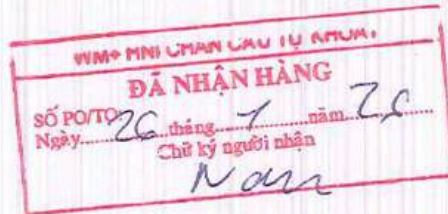 WM+ HNI CHAN CAU TU KHOAI
ĐÃ NHẬN HÀNG
SỐ PO/TO
Ngày 26 tháng 1 năm 26
Chữ ký người nhận
Nam